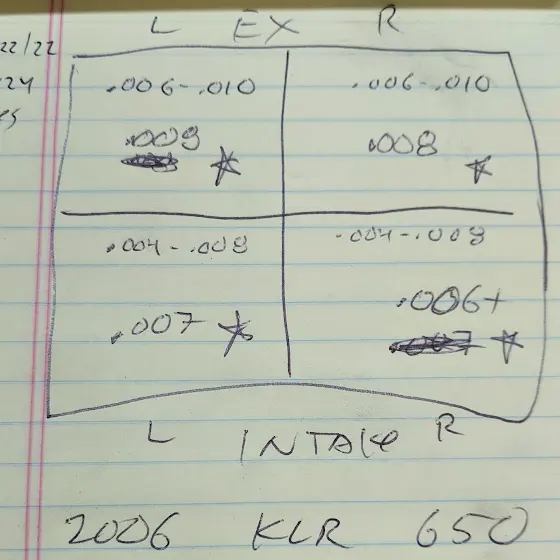 L EX R
22/22
24
.006-.010 .006-.010
.009 .008
.004-.008 .004-.008
.006+
.007
L INTAKE R
2006 KLR 650